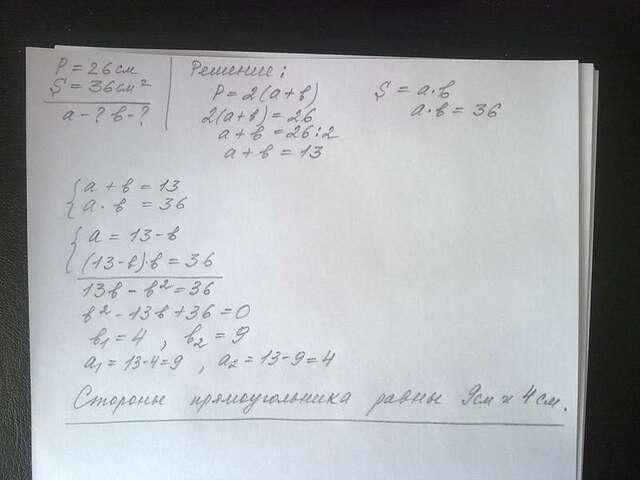 P = 26 см
S = 36 см²
a - ? b - ?
Решение:
P = 2(a+b)
2(a+b) = 26
a + b = 26:2
a + b = 13
S = a·b
a·b = 36
{ a + b = 13
{ a · b = 36
{ a = 13 - b
{ (13-b)·b = 36
13b - b² = 36
b² - 13b + 36 = 0
b₁ = 4 , b₂ = 9
a₁ = 13-4 = 9 , a₂ = 13-9 = 4
Стороны прямоугольника равны 9см и 4 см.